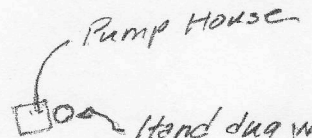 Pump House
Hand dug